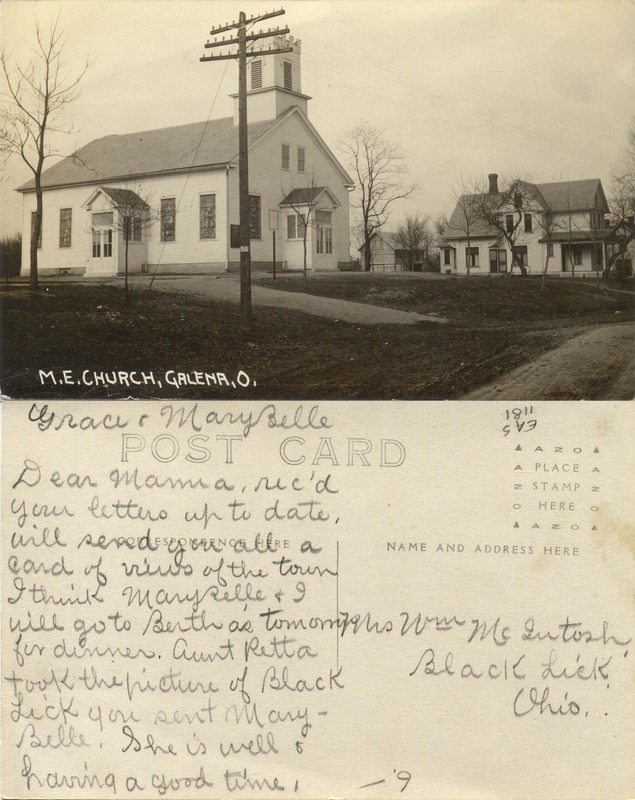 M.E. CHURCH, GALENA, O.
Grace & MaryBelle
POST CARD
EAS
1181
Dear Mamma, rec'd
your letters up to date,
will send you all a
card of views of the town
I think MaryBelle & I
will go to Bertha's tomorrow
for dinner. Aunt Retta
took the picture of Black
Lick you sent Mary-
Belle. She is well &
having a good time.
CORRESPONDENCE HERE
AZO
PLACE
STAMP
HERE
AZO
NAME AND ADDRESS HERE
Mrs Wm McIntosh
Black Lick
Ohio.